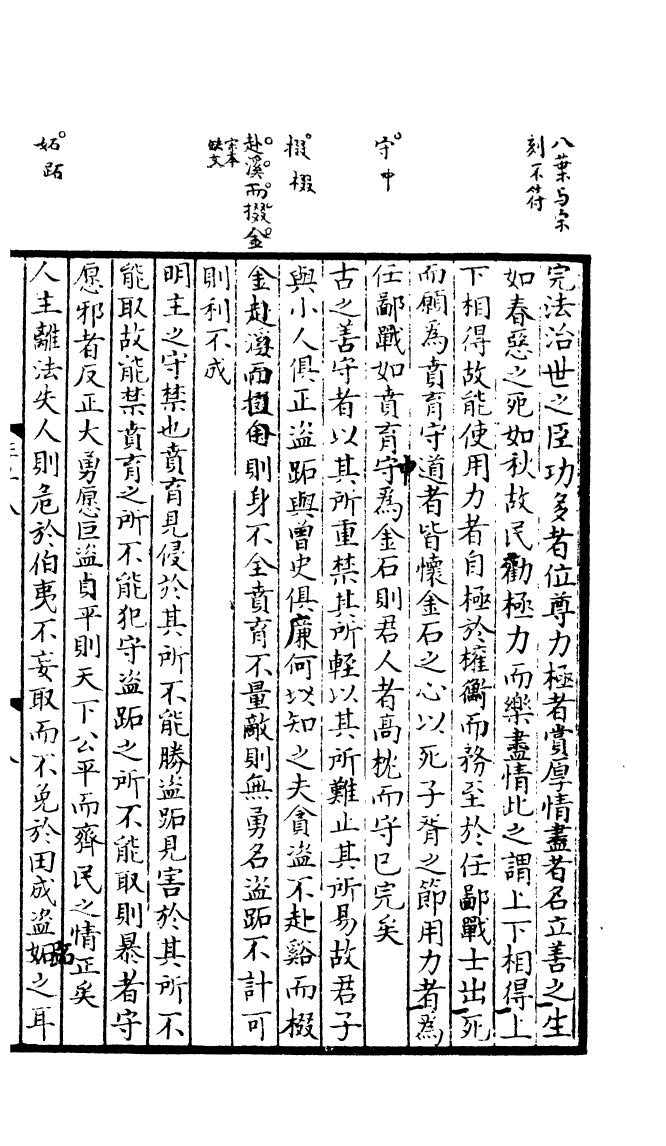 八葉与宋
刻不符
守中
掇㮼
赴溪而掇金
宋本
缺文
妬跖
完法治世之臣功多者位尊力極者賞厚情盡者名立善之生
如春惡之死如秋故民勸極力而樂盡情此之謂上下相得上
下相得故能使用力者自極於權衡而務至於任鄙戰士出死
而願為賁育守道者皆懷金石之心以死子胥之節用力者為
任鄙戰如賁育守為金石則君人者高枕而守已完矣
古之善守者以其所重禁其所輕以其所難止其所易故君子
與小人俱正盜跖與曾史俱廉何以知之夫貪盜不赴谿而掇
金赴溪而掇金則身不全賁育不量敵則無勇名盜跖不計可
則利不成
明主之守禁也賁育見侵於其所不能勝盜跖見害於其所不
能取故能禁賁育之所不能犯守盜跖之所不能取則暴者守
愿邪者反正大勇愿巨盜貞平則天下公平而齊民之情正矣
人主離法失人則危於伯夷不妄取而不免於田成盜跖之耳